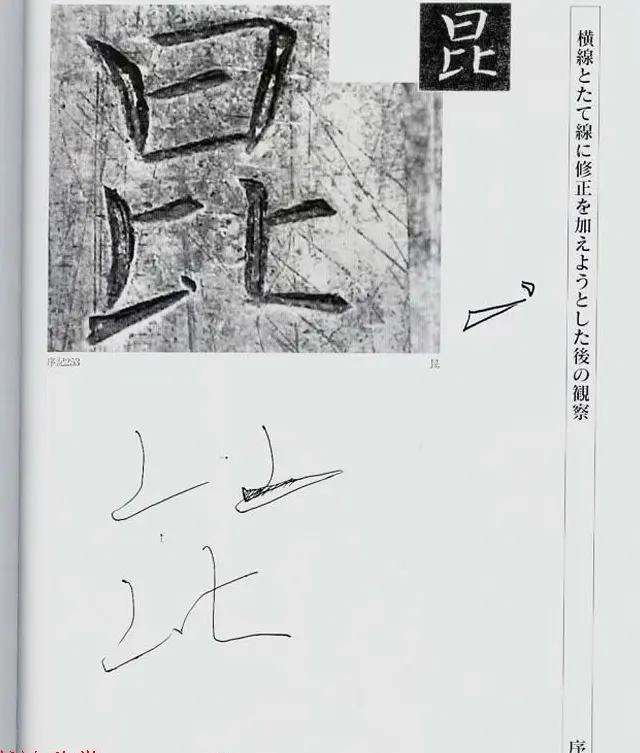 横線とたて線に修正を加えようとした後の観察
序
昆
昆
序記253
昆